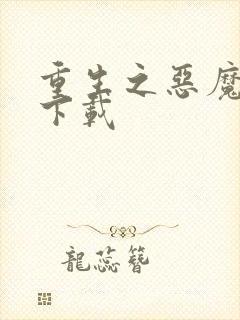 重生之惡魔
下載
龍蕊簪